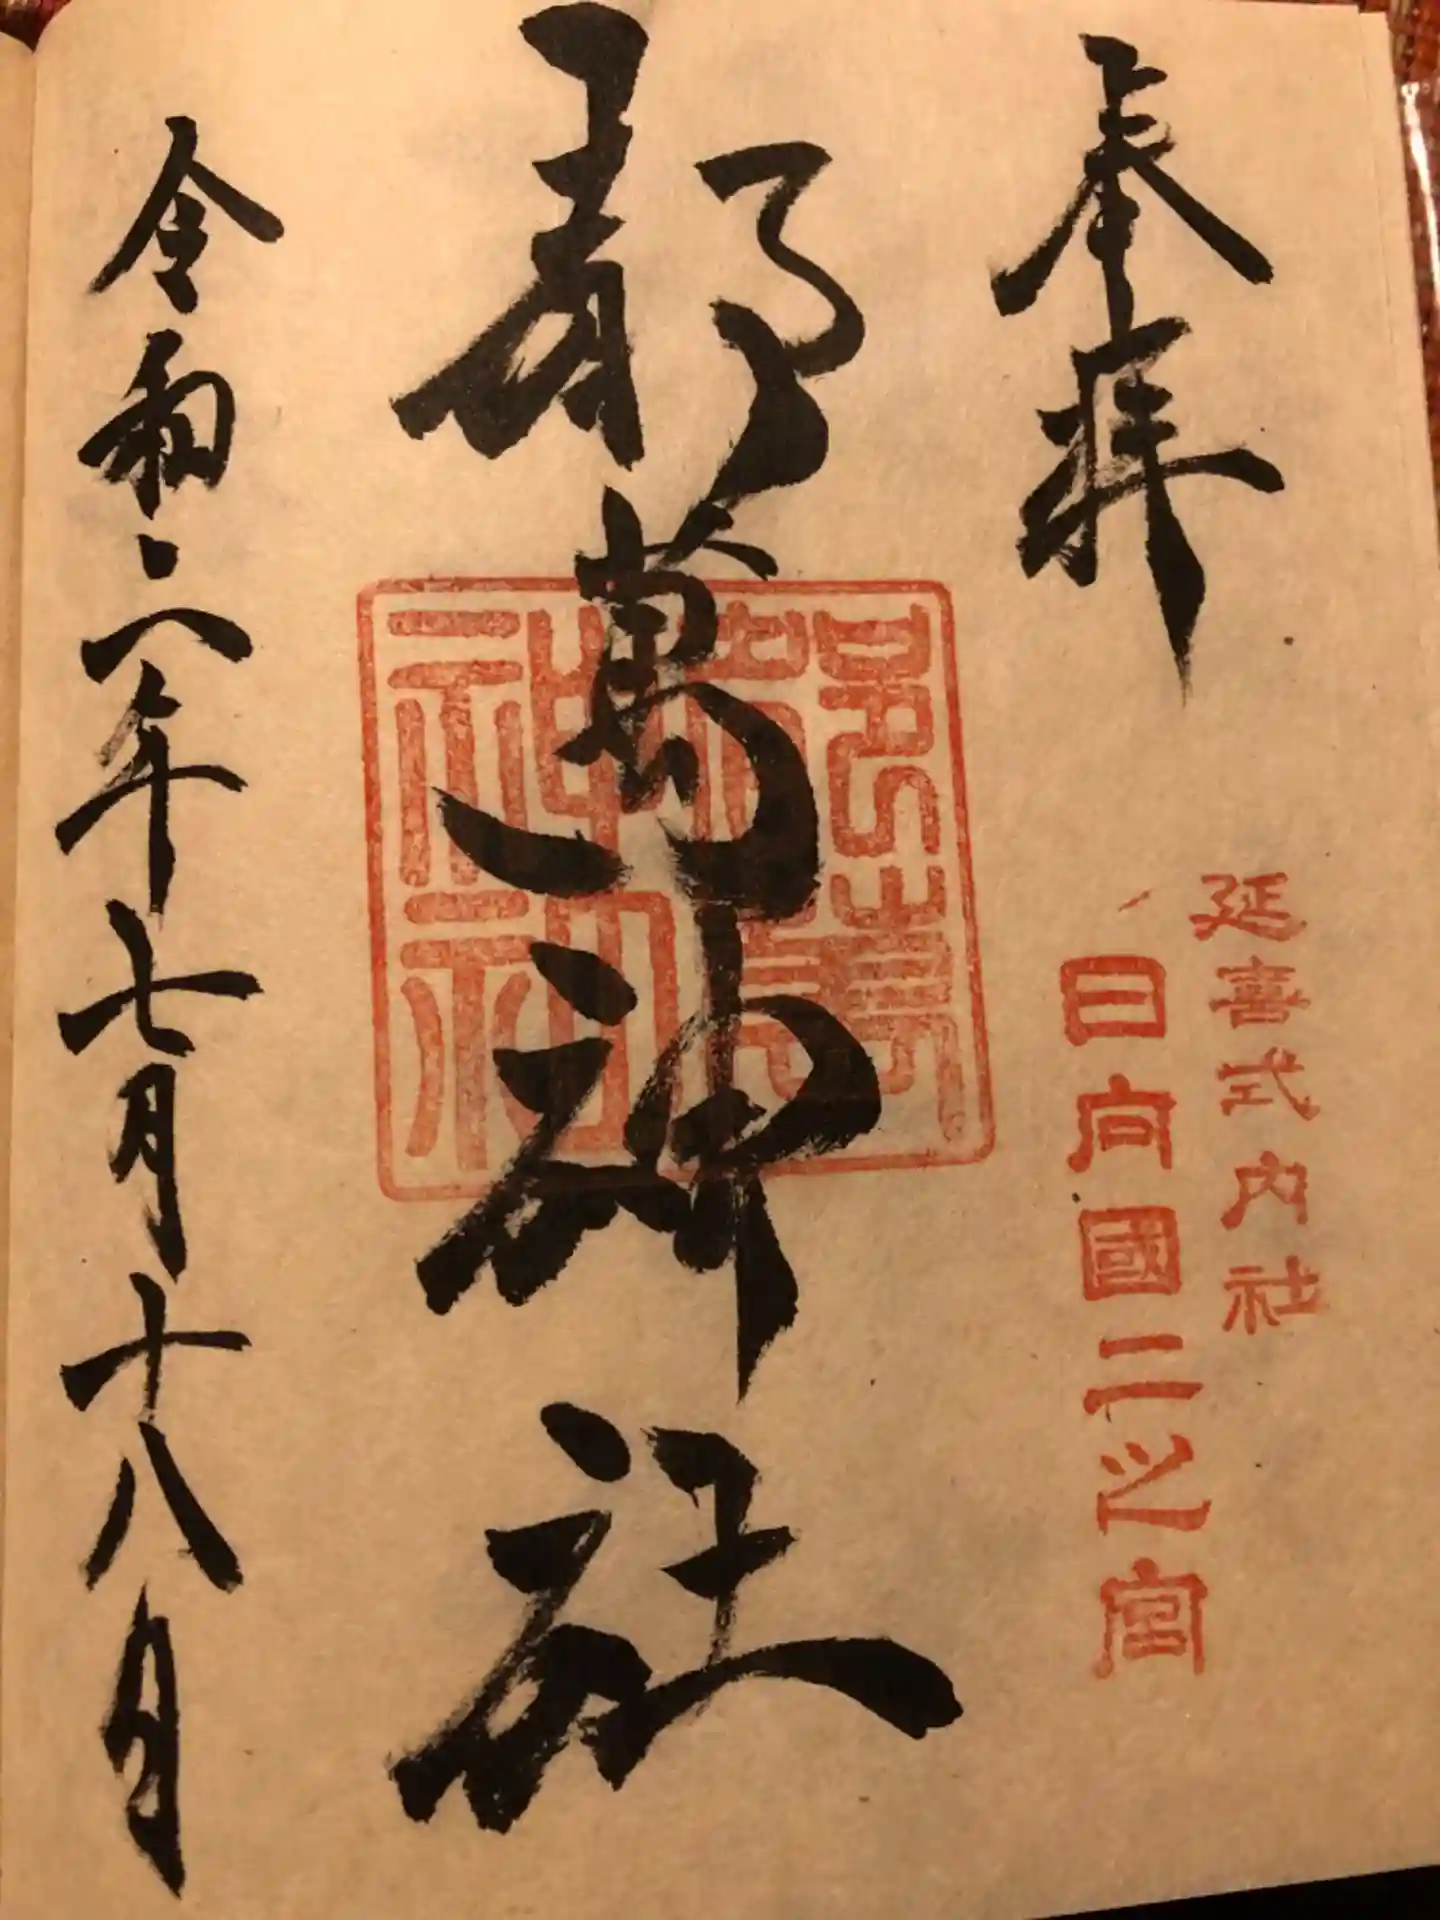 奉拝
延喜式内社
日向國二之宮
都萬神社
令和六年七月十八日